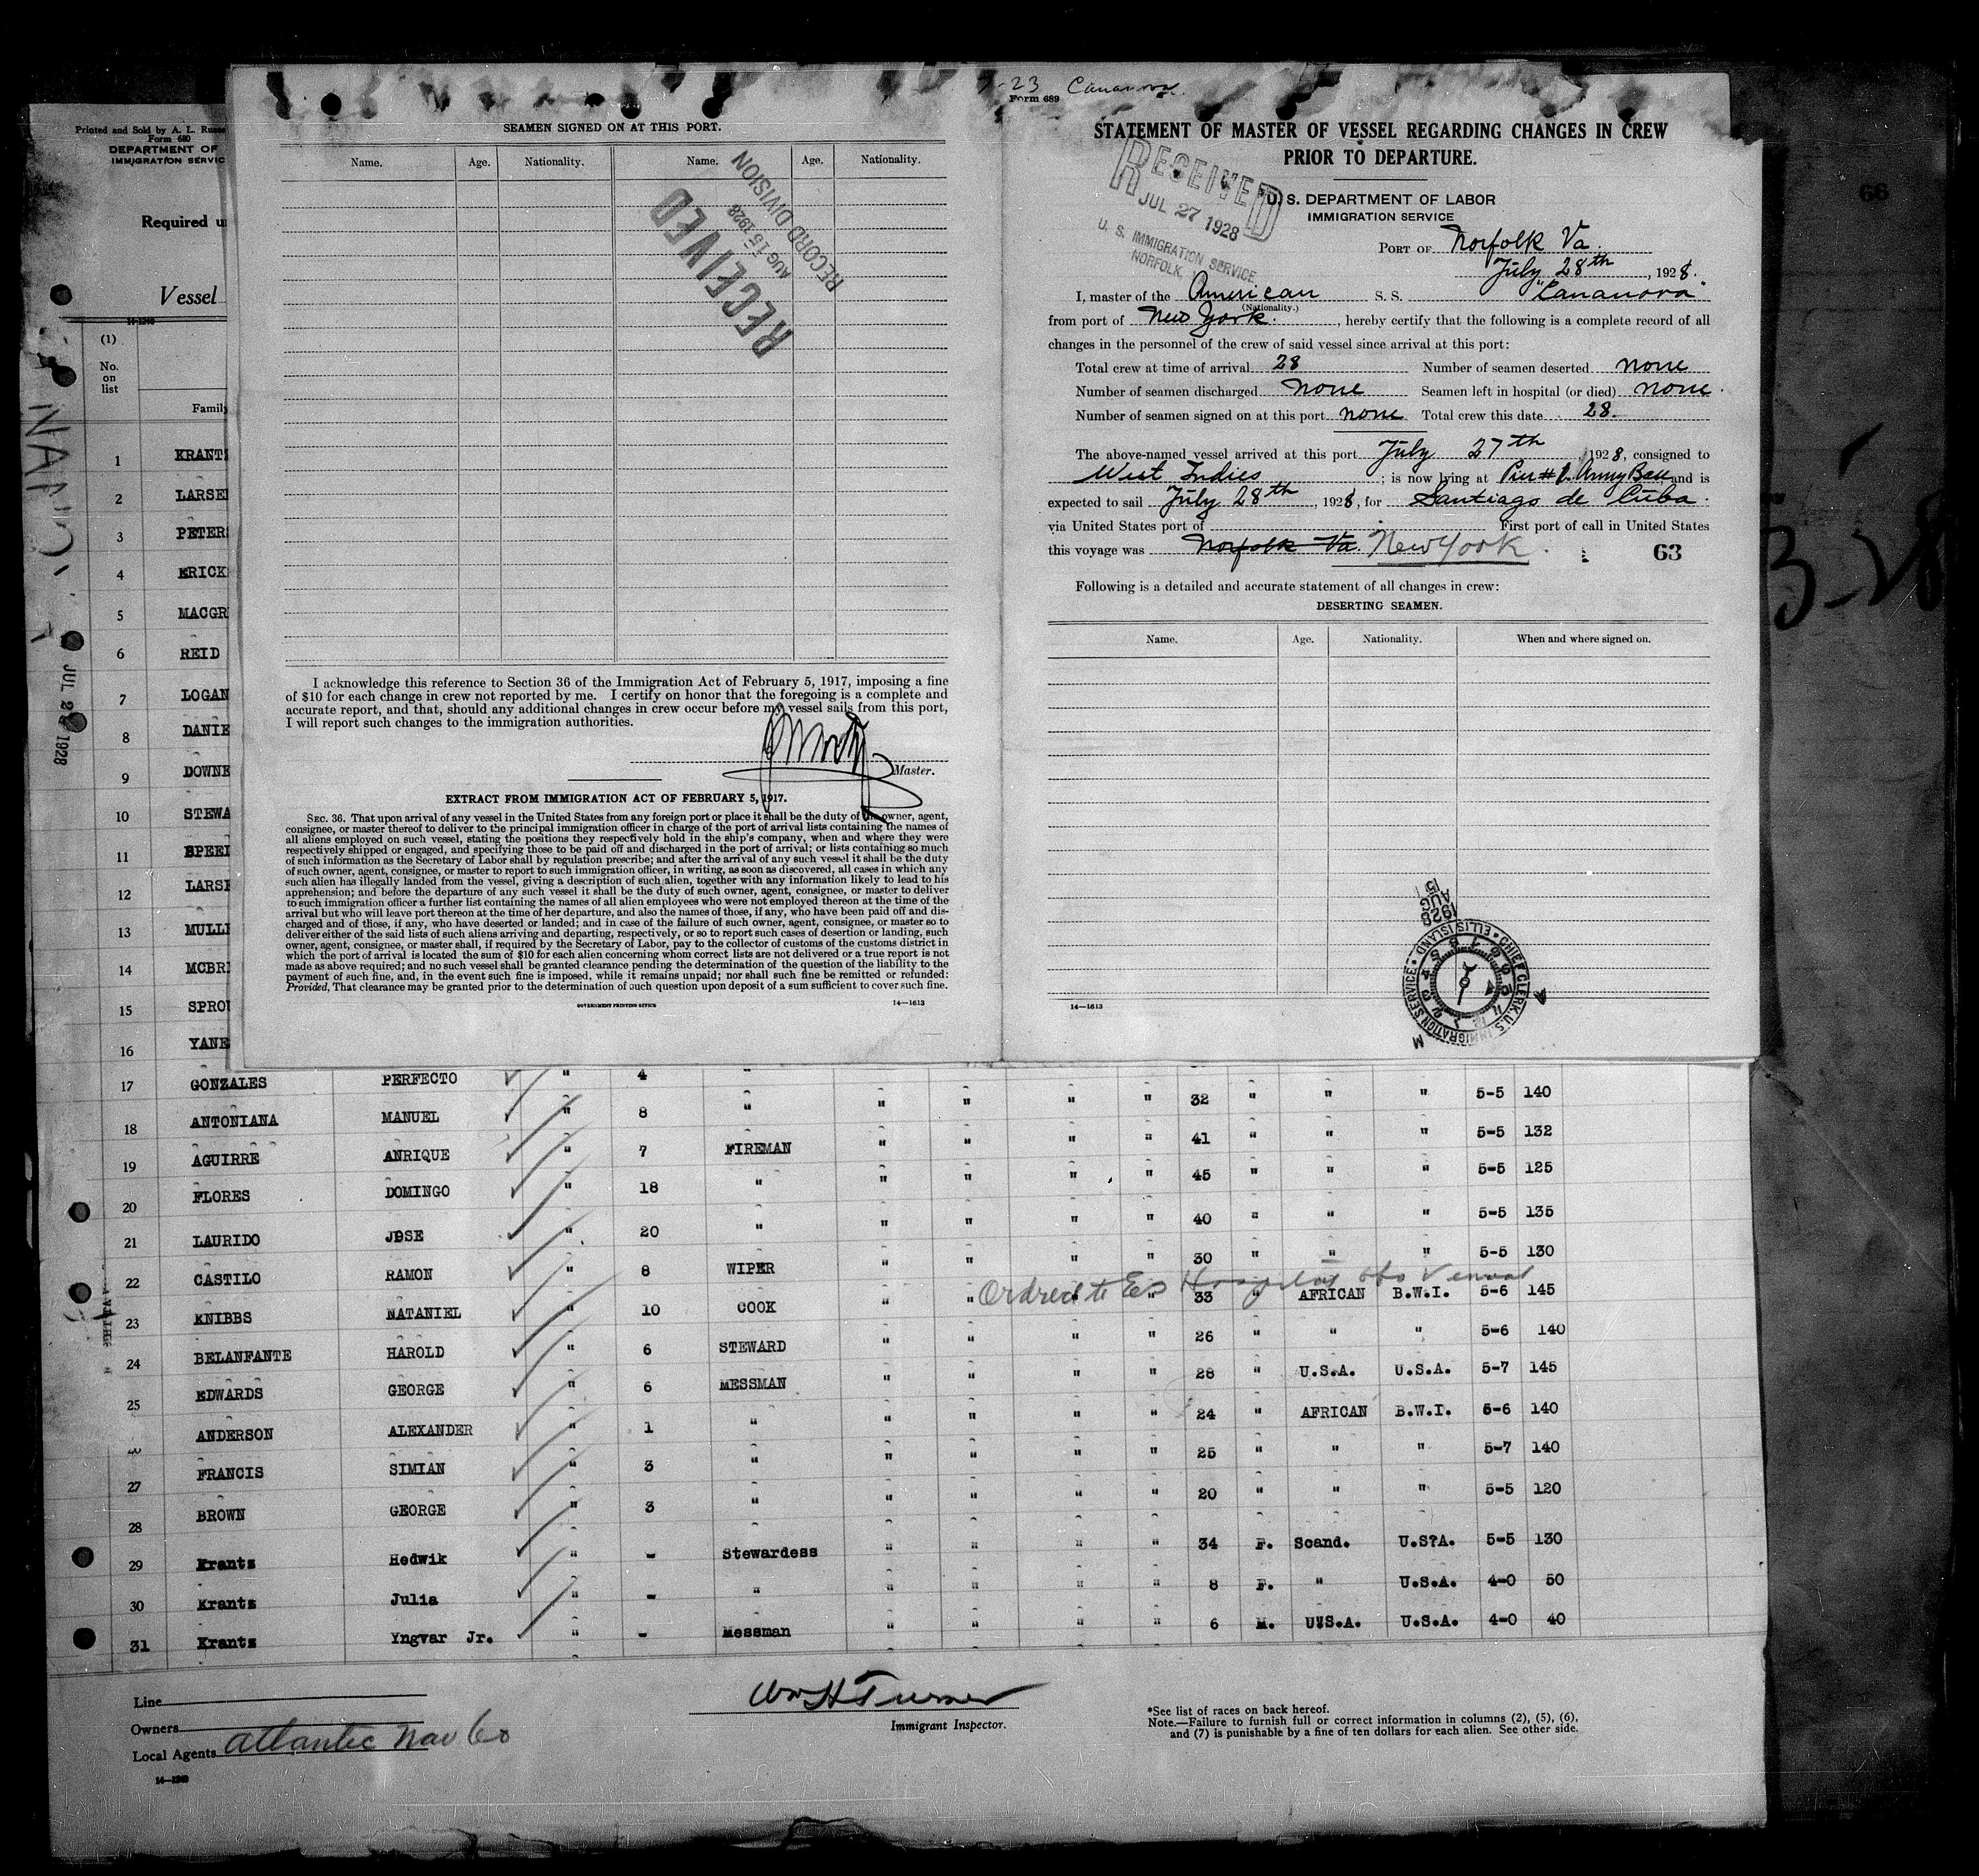 -23 Cananova.
Form 689
SEAMEN SIGNED ON AT THIS PORT.
Name. Age. Nationality. Name. Age. Nationality.
RECEIVED
AUG 15 1928
RECORD DIVISION
I acknowledge this reference to Section 36 of the Immigration Act of February 5, 1917, imposing a fine
of $10 for each change in crew not reported by me. I certify on honor that the foregoing is a complete and
accurate report, and that, should any additional changes in crew occur before my vessel sails from this port,
I will report such changes to the immigration authorities.
Master.
EXTRACT FROM IMMIGRATION ACT OF FEBRUARY 5, 1917.
SEC. 36. That upon arrival of any vessel in the United States from any foreign port or place it shall be the duty of the owner, agent,
consignee, or master thereof to deliver to the principal immigration officer in charge of the port of arrival lists containing the names of
all aliens employed on such vessel, stating the positions they respectively hold in the ship's company, when and where they were
respectively shipped or engaged, and specifying those to be paid off and discharged in the port of arrival; or lists containing so much
of such information as the Secretary of Labor shall by regulation prescribe; and after the arrival of any such vessel it shall be the duty
of such owner, agent, consignee, or master to report to such immigration officer, in writing, as soon as discovered, all cases in which any
such alien has illegally landed from the vessel, giving a description of such alien, together with any information likely to lead to his
apprehension; and before the departure of any such vessel it shall be the duty of such owner, agent, consignee, or master to deliver
to such immigration officer a further list containing the names of all alien employees who were not employed thereon at the time of the
arrival but who will leave port thereon at the time of her departure, and also the names of those, if any, who have been paid off and dis-
charged and of those, if any, who have deserted or landed; and in case of the failure of such owner, agent, consignee, or master so to
deliver either of the said lists of such aliens arriving and departing, respectively, or so to report such cases of desertion or landing, such
owner, agent, consignee, or master shall, if required by the Secretary of Labor, pay to the collector of customs of the customs district in
which the port of arrival is located the sum of $10 for each alien concerning whom correct lists are not delivered or a true report is not
made as above required; and no such vessel shall be granted clearance pending the determination of the question of the liability to the
payment of such fine, and, in the event such fine is imposed, while it remains unpaid; nor shall such fine be remitted or refunded:
Provided, That clearance may be granted prior to the determination of such question upon deposit of a sum sufficient to cover such fine.
GOVERNMENT PRINTING OFFICE 14—1613
STATEMENT OF MASTER OF VESSEL REGARDING CHANGES IN CREW
PRIOR TO DEPARTURE.
RECEIVED
JUL 27 1928
U. S. IMMIGRATION SERVICE
NORFOLK,
U. S. DEPARTMENT OF LABOR
IMMIGRATION SERVICE
PORT OF Norfolk Va.
July 28th, 1928.
I, master of the American S. S. "Cananova"
(Nationality.)
from port of New York., hereby certify that the following is a complete record of all
changes in the personnel of the crew of said vessel since arrival at this port:
Total crew at time of arrival 28 Number of seamen deserted none
Number of seamen discharged None Seamen left in hospital (or died) none.
Number of seamen signed on at this port none Total crew this date 28.
The above-named vessel arrived at this port July 27th, 1928, consigned to
West Indies; is now lying at Pier #1. Army Base and is
expected to sail July 28th, 1928, for Santiago de Cuba.
via United States port of First port of call in United States
this voyage was Norfolk Va. New York. 63
Following is a detailed and accurate statement of all changes in crew:
DESERTING SEAMEN.
Name. Age. Nationality. When and where signed on.
1928
AUG
15
CHIEF CLERK, U.S. IMMIGRATION SERVICE • ELLIS ISLAND •
14—1613
66
Printed and Sold by A. L. Russe
Form 680
DEPARTMENT OF
IMMIGRATION SERVIC
Required u
Vessel
14-1240
(1)
No.
on
list
Family
JUL 2 1928
1 KRANT
2 LARSE
3 PETER
4 ERICK
5 MACGR
6 REID
7 LOGAN
8 DANIE
9 DOWNE
10 STEWA
11 SPEE
12 LARS
13 MULL
14 MCBR
15 SPRO
16 YANE
17 GONZALES PERFECTO " 4 " " " " " 32 " " " 5-5 140
18 ANTONIANA MANUEL " 8 " " " " " 41 " " " 5-5 132
19 AGUIRRE ANRIQUE " 7 FIREMAN " " " " 45 " " " 5-5 125
20 FLORES DOMINGO " 18 " " " " " 40 " " " 5-5 135
21 LAURIDO JOSE " 20 " " " " " 30 " " " 5-5 130
Ordred to E.I. Hospital
22 CASTILO RAMON " 8 WIPER " " " " 33 " AFRICAN B.W.I. 5-6 145
23 KNIBBS NATANIEL " 10 COOK " " " " 26 " " " 5-6 140
24 BELANFANTE HAROLD " 6 STEWARD " " " " 28 " U.S.A. U.S.A. 5-7 145
25 EDWARDS GEORGE " 6 MESSMAN " " " " 24 " AFRICAN B.W.I. 5-6 140
ANDERSON ALEXANDER " 1 " " " " " 25 " " " 5-7 140
27 FRANCIS SIMIAN " 3 " " " " " 20 " " " 5-5 120
28 BROWN GEORGE " 3 "
29 Krantz Hedwik " - Stewardess " " " " 34 F. Scand. U.S?A. 5-5 130
30 Krantz Julia " - " " " " " 8 F. " U.S.A. 4-0 50
31 Krantz Yngvar Jr. " - Messman " " " " 6 M. U.S.A. U.S.A. 4-0 40
Line
Owners
Local Agents Atlantic Nav Co
14—1240
Wm H Turner
Immigrant Inspector.
*See list of races on back hereof.
Note.—Failure to furnish full or correct information in columns (2), (5), (6),
and (7) is punishable by a fine of ten dollars for each alien. See other side.